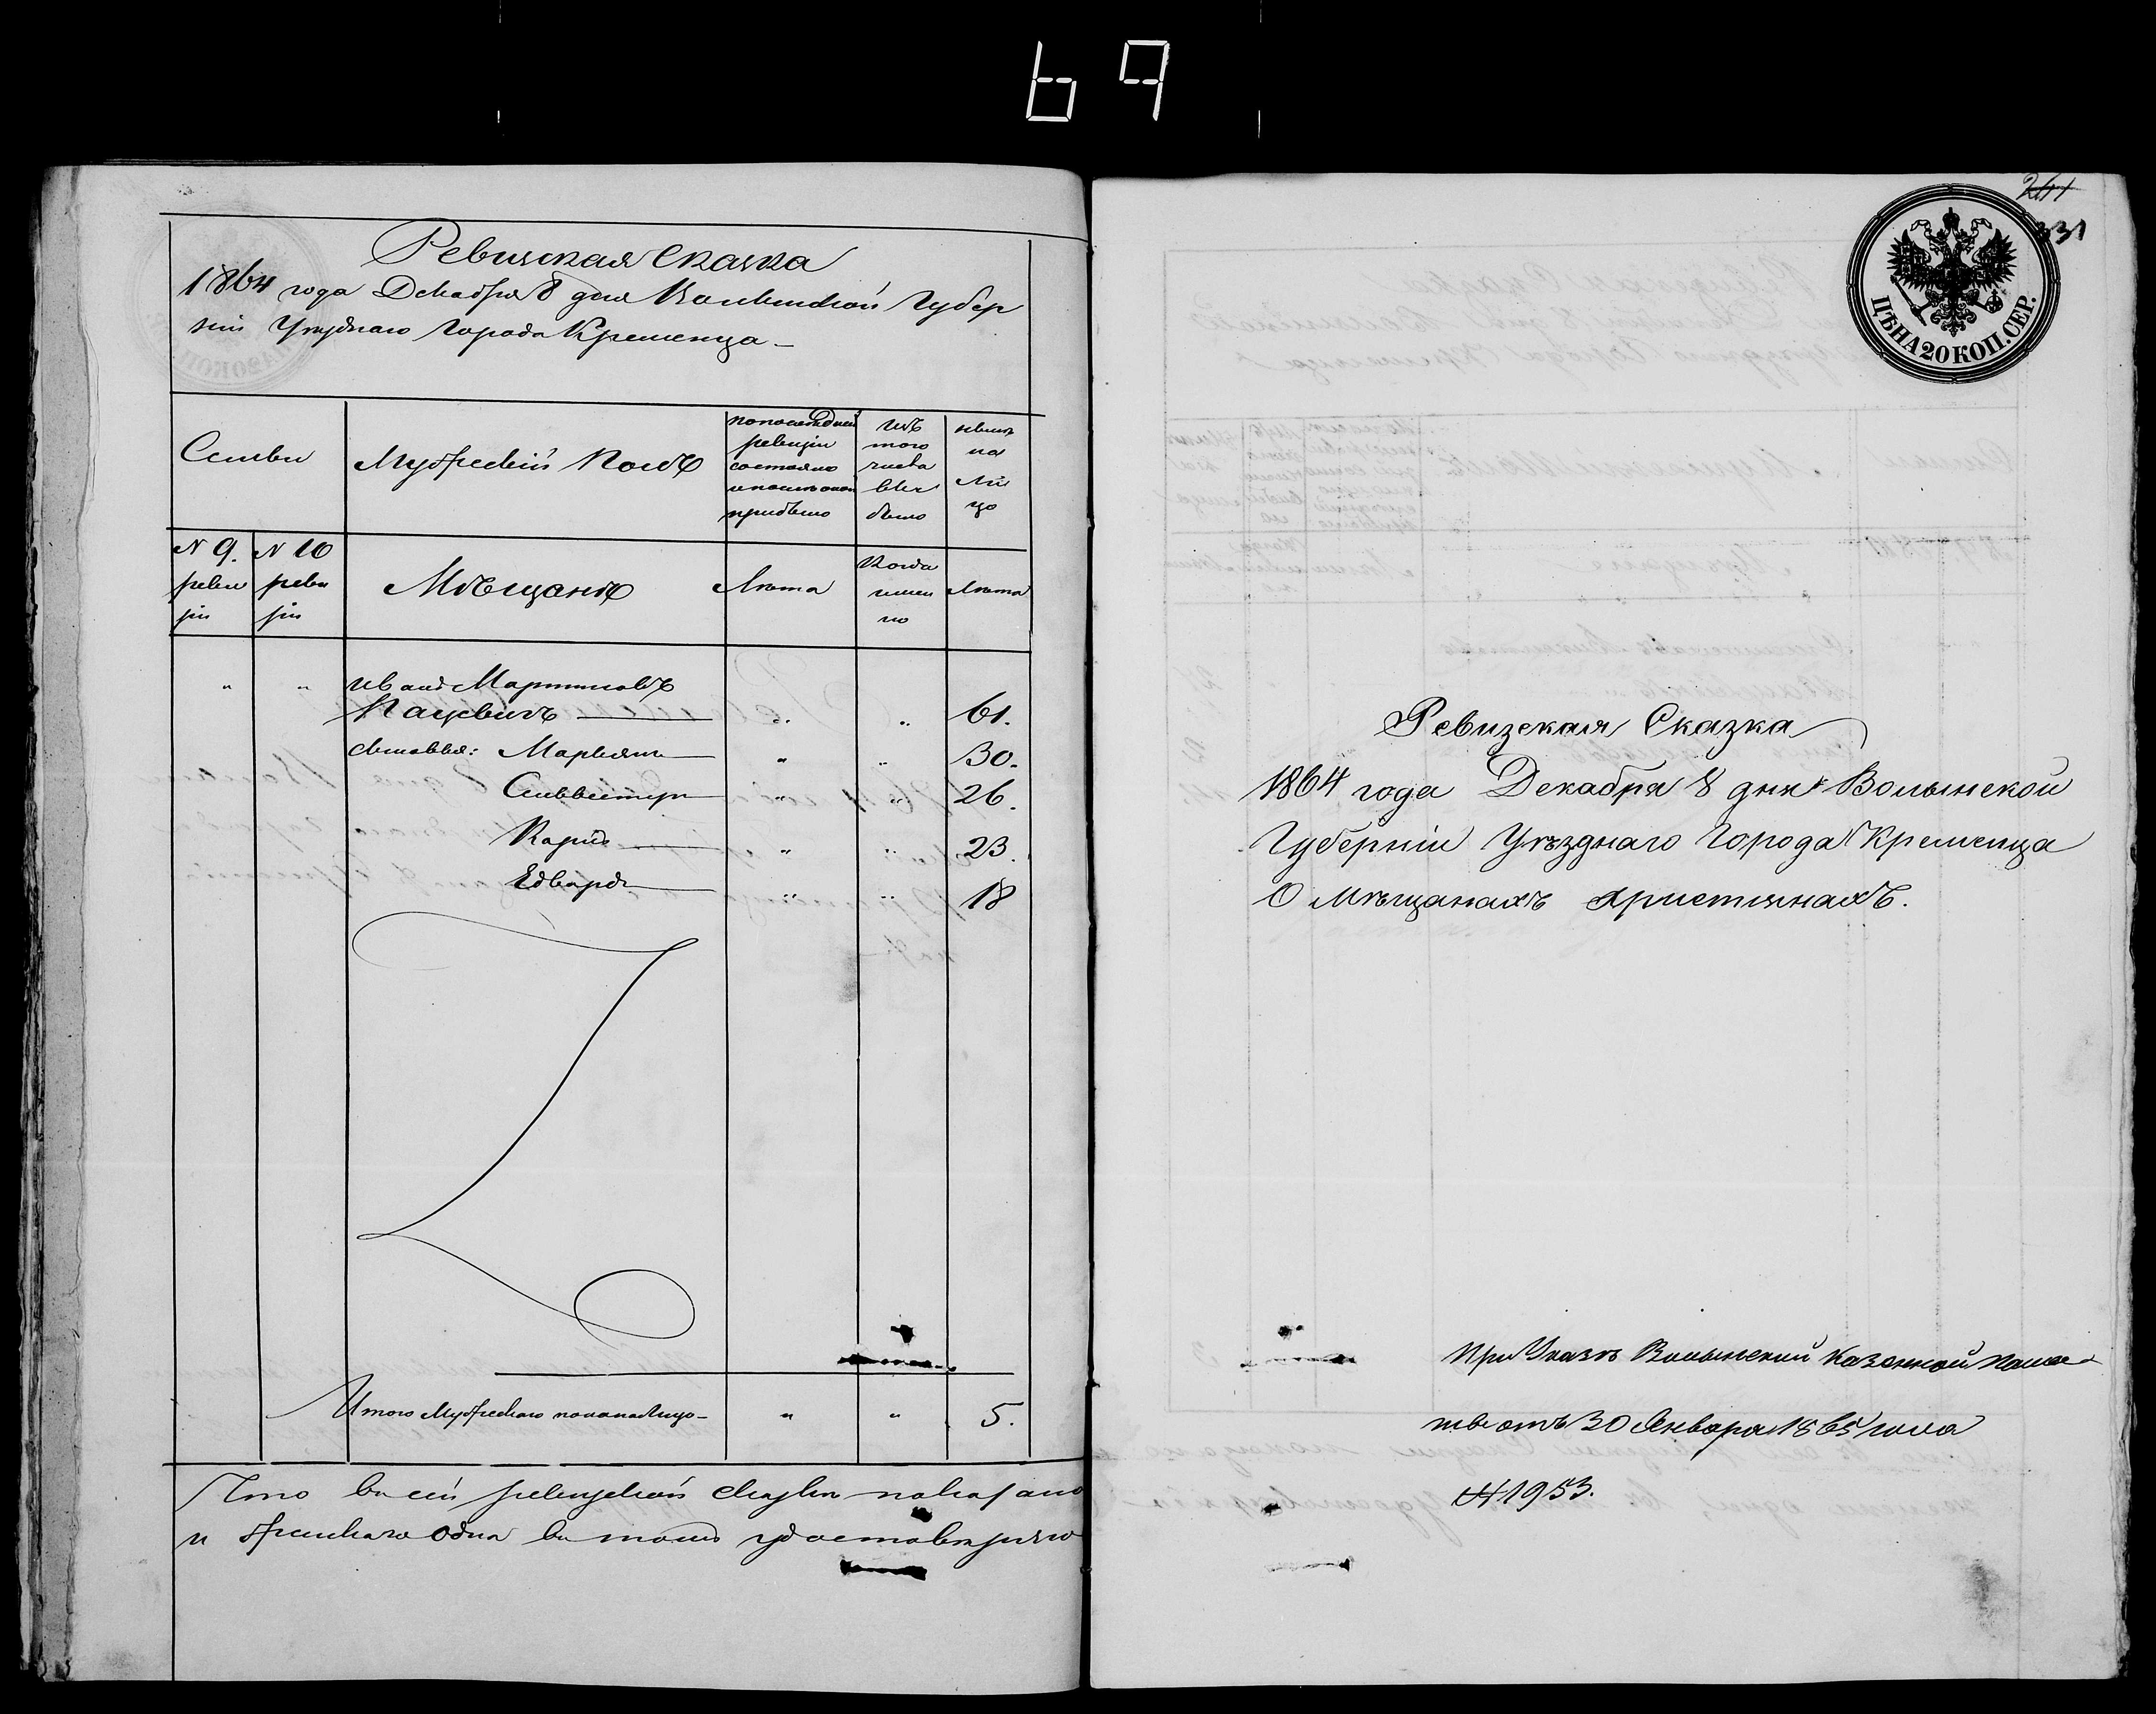 69
Ревизская Сказка
1864 года Декабря 8 дня Волынской Губер
ніи Уѣзднаго Города Кременца
Семьи
Мужескій Полъ
по последней
ревизіи
состояло
и после оной
прибыло
изъ
того
числа
вы
было
нынѣ
на
ли
цо
N 9.
реви
зіи
N 10
реви
зіи
Мѣщанѣ
Лѣта
Когда
имен
но
Лѣта
" " Иванъ Мартиновъ
Пацевичъ " " 61.
Сыновья: Марьянъ " " 30.
Сильвестръ " " 26.
Карпъ " " 23.
Едвардъ " " 18
Итого Мужескаго пола на лицо " " 5.
Что въ сей ревизской сказке показано
и женскаго одна въ томъ удостоверяю
241
331
ЦѢНА 20 КОП. СЕР.
Ревизская Сказка
1864 года Декабря 8 дня Волынской
Губерніи Уѣзднаго Города Кременца
О мѣщанахъ христянахъ.
При Указѣ Волынской Казенной Пала
ты отъ 30 Января 1865 года
N 1953.